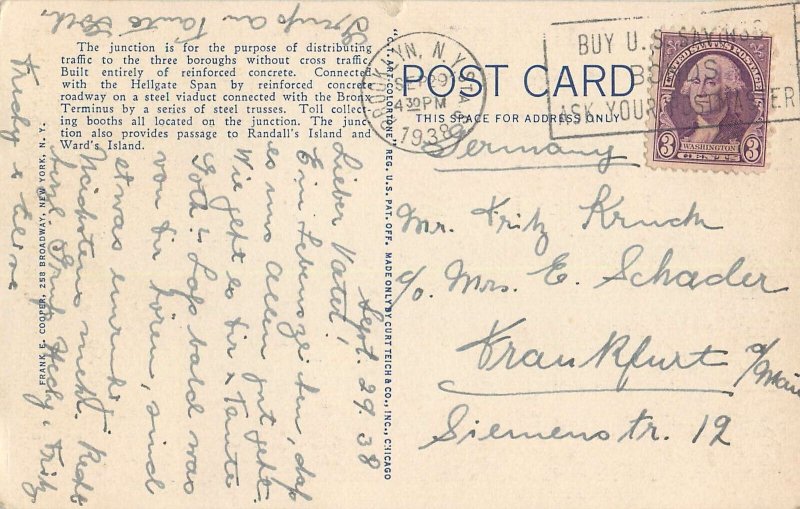 The junction is for the purpose of distributing
traffic to the three boroughs without cross traffic.
Built entirely of reinforced concrete. Connected
with the Hellgate Span by reinforced concrete
roadway on a steel viaduct connected with the Bronx
Terminus by a series of steel trusses. Toll collect-
ing booths all located on the junction. The junc-
tion also provides passage to Randall's Island and
Ward's Island.
FRANK E. COOPER, 258 BROADWAY, NEW YORK, N. Y.
"C. T. ART-COLORTONE" REG. U. S. PAT. OFF. MADE ONLY BY CURT TEICH & CO., INC., CHICAGO
Sept. 29. 38
Lieber Vater!
Ein Lebenszeichen, daß
es uns allen gut geht.
Wie geht es Dir & Tante
Loth? Laß bald was
von Dir hören, sind
etwas
Nächstens mehr.
Fritz
Gruß an Tante
BROOKLYN, N.Y.
SEP 29
4 30 PM
1938
BUY U.S. SAVINGS
BONDS
ASK YOUR POSTMASTER
UNITED STATES POSTAGE
WASHINGTON
3 CENTS 3
POST CARD
THIS SPACE FOR ADDRESS ONLY
Germany
Mr. Fritz Kruch
c/o Mrs. E. Schader
Frankfurt a/Main
Siemensstr. 12